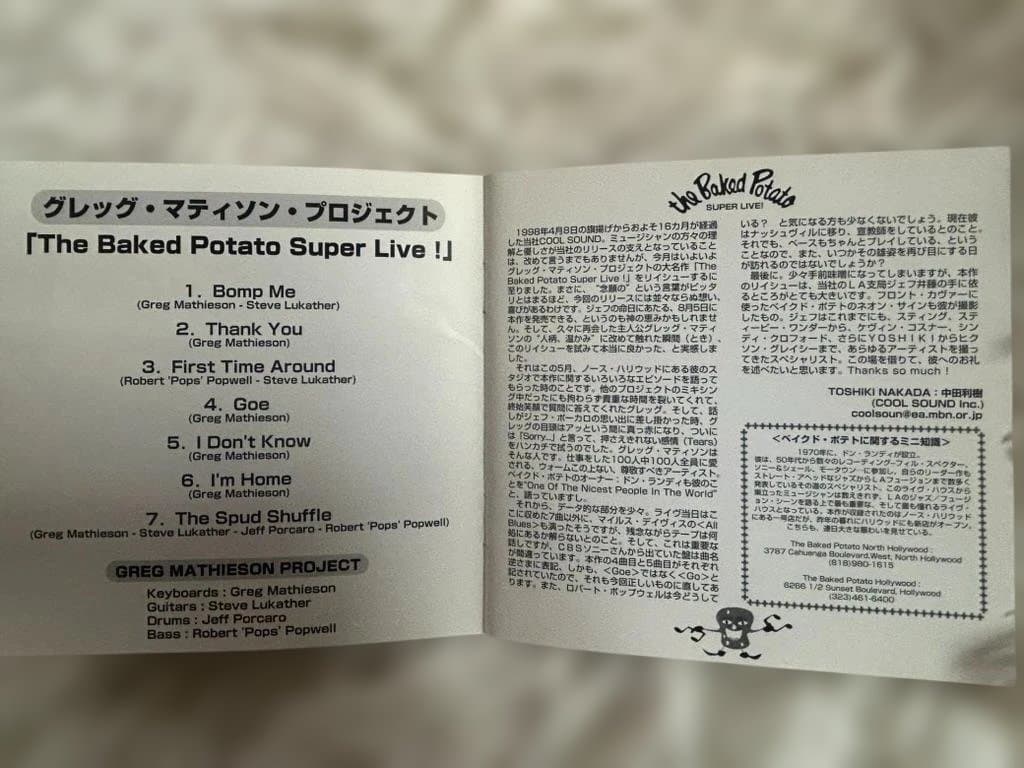 グレッグ・マティソン・プロジェクト
「The Baked Potato Super Live !」
1. Bomp Me
(Greg Mathieson - Steve Lukather)
2. Thank You
(Greg Mathieson)
3. First Time Around
(Robert 'Pops' Popwell - Steve Lukather)
4. Goe
(Greg Mathieson)
5. I Don't Know
(Greg Mathieson)
6. I'm Home
(Greg Mathieson)
7. The Spud Shuffle
(Greg Mathieson - Steve Lukather - Jeff Porcaro - Robert 'Pops' Popwell)
GREG MATHIESON PROJECT
Keyboards : Greg Mathieson
Guitars : Steve Lukather
Drums : Jeff Porcaro
Bass : Robert 'Pops' Popwell
the Baked Potato
SUPER LIVE!
1998年4月8日の旗揚げからおよそ16カ月が経過
した当社COOL SOUND。ミュージシャンの方々の理
解と優しさが当社のリリースの支えとなっていること
は、改めて言うまでもありませんが、今月はいよいよ
グレッグ・マティソン・プロジェクトの大名作「The
Baked Potato Super Live !」をリイシューするに
至りました。まさに、“念願の” という言葉がピッタ
リとはまるほど、今回のリリースには並々ならぬ想い、
喜びがあるわけです。ジェフの命日にあたる、8月5日に
本作を発売できる、というのも神の恵みかもしれませ
ん。そして、久々に再会した主人公グレッグ・マティ
ソンの “人柄、温かみ” に改めて触れた瞬間（とき）、
このリイシューを試みて本当に良かった、と実感しま
した。
それはこの5月、ノース・ハリウッドにある彼のス
タジオで本作に関するいろいろなエピソードを語って
もらった時のことです。他のプロジェクトのミキシン
グ中だったにも拘わらず貴重な時間を裂いてくれて、
終始笑顔で質問に答えてくれたグレッグ。そして、話
しがジェフ・ポーカロの思い出に差し掛かった時、グ
レッグの目頭はアッという間に真っ赤になり、ついに
は「Sorry...」と言って、押さえきれない感情（Tears）
をハンカチで拭うのでした。グレッグ・マティソンは
そんな人です。仕事をした100人中100人全員に愛
される、ウォームこの上ない、尊敬すべきアーティスト。
ベイクド・ポテトのオーナー：ドン・ランディも彼のこ
とを“One Of The Nicest People In The World”
と、語っていますし。
それから、データ的な部分を少々。ライヴ当日はこ
こに収めた7曲以外に、マイルス・デイヴィスの<All
Blues>も演ったそうですが、残念ながらテープは何
処にあるか解らないとのこと。そして、これは重要な
話しですが、CBSソニーさんから出ていた盤は曲名
が間違っています。本作の4曲目と5曲目がそれぞれ
逆さまに表記、しかも、<Goe>ではなく<Go>と
記されていたので、それも今回正しいものに直してあ
ります。また、ロバート・ポップウェルは今どうして
いる？ と気になる方も少なくないでしょう。現在彼
はナッシュヴィルに移り、宣教師をしているとのこと。
それでも、ベースもちゃんとプレイしている、という
ことなので、また、いつかその雄姿を再び目にする日
が訪れるのではないでしょうか？
最後に。少々手前味噌になってしまいますが、本作
のリイシューは、当社のLA支局ジェフ井藤の手に依
るところがとても大きいです。フロント・カヴァーに
使ったベイクド・ポテトのネオン・サインも彼が撮影
したもの。ジェフはこれまでにも、スティング、ステ
ィービー・ワンダーから、ケヴィン・コスナー、シン
ディ・クロフォード、さらにYOSHIKIからヒク
ソン・グレイシーまで、あらゆるアーティストを撮っ
てきたスペシャリスト。この場を借りて、彼へのお礼
を述べたいと思います。Thanks so much !
TOSHIKI NAKADA：中田利樹
(COOL SOUND Inc.)
coolsoun@ea.mbn.or.jp
＜ベイクド・ポテトに関するミニ知識＞
1970年に、ドン・ランディが設立。
彼は、50年代から数々のレコーディング−フィル・スペクター、
ソニー&シェール、モータウン−に参加し、自らのリーダー作も
ストレート・アヘッドなジャズからLAフュージョンまで数多く
発表しているその道のスペシャリスト。このライヴ・ハウスから
巣立ったミュージシャンは数えきれず、LAのジャズ／フュージ
ョン・シーンを語る上で最も重要な、そして最も憧れるライヴ・
ハウスとなっている。本作が収録されたのはノース・ハリウッド
にある一号店だが、昨年の暮れにハリウッドにも新店がオープン。
こちらも、連日大きな賑わいを見せている。
The Baked Potato North Hollywood :
3787 Cahuenga Boulevard.West, North Hollywood
(818)980-1615
The Baked Potato Hollywood :
6266 1/2 Sunset Boulevard, Hollywood
(323)461-6400